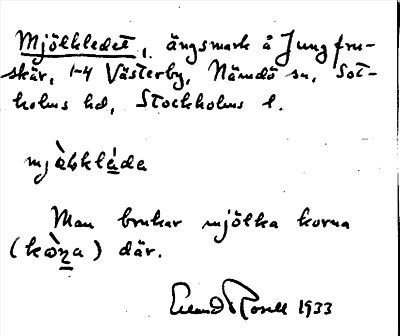 Mjölkledet, ängsmark å Jungfru-
skär, 1-4 Västerby, Nämdö sn, Sot-
holms hd, Stockholms l.
mjə̀lkléda
Man brukar mjölka korna
(kòna) där.
Rosell 1933